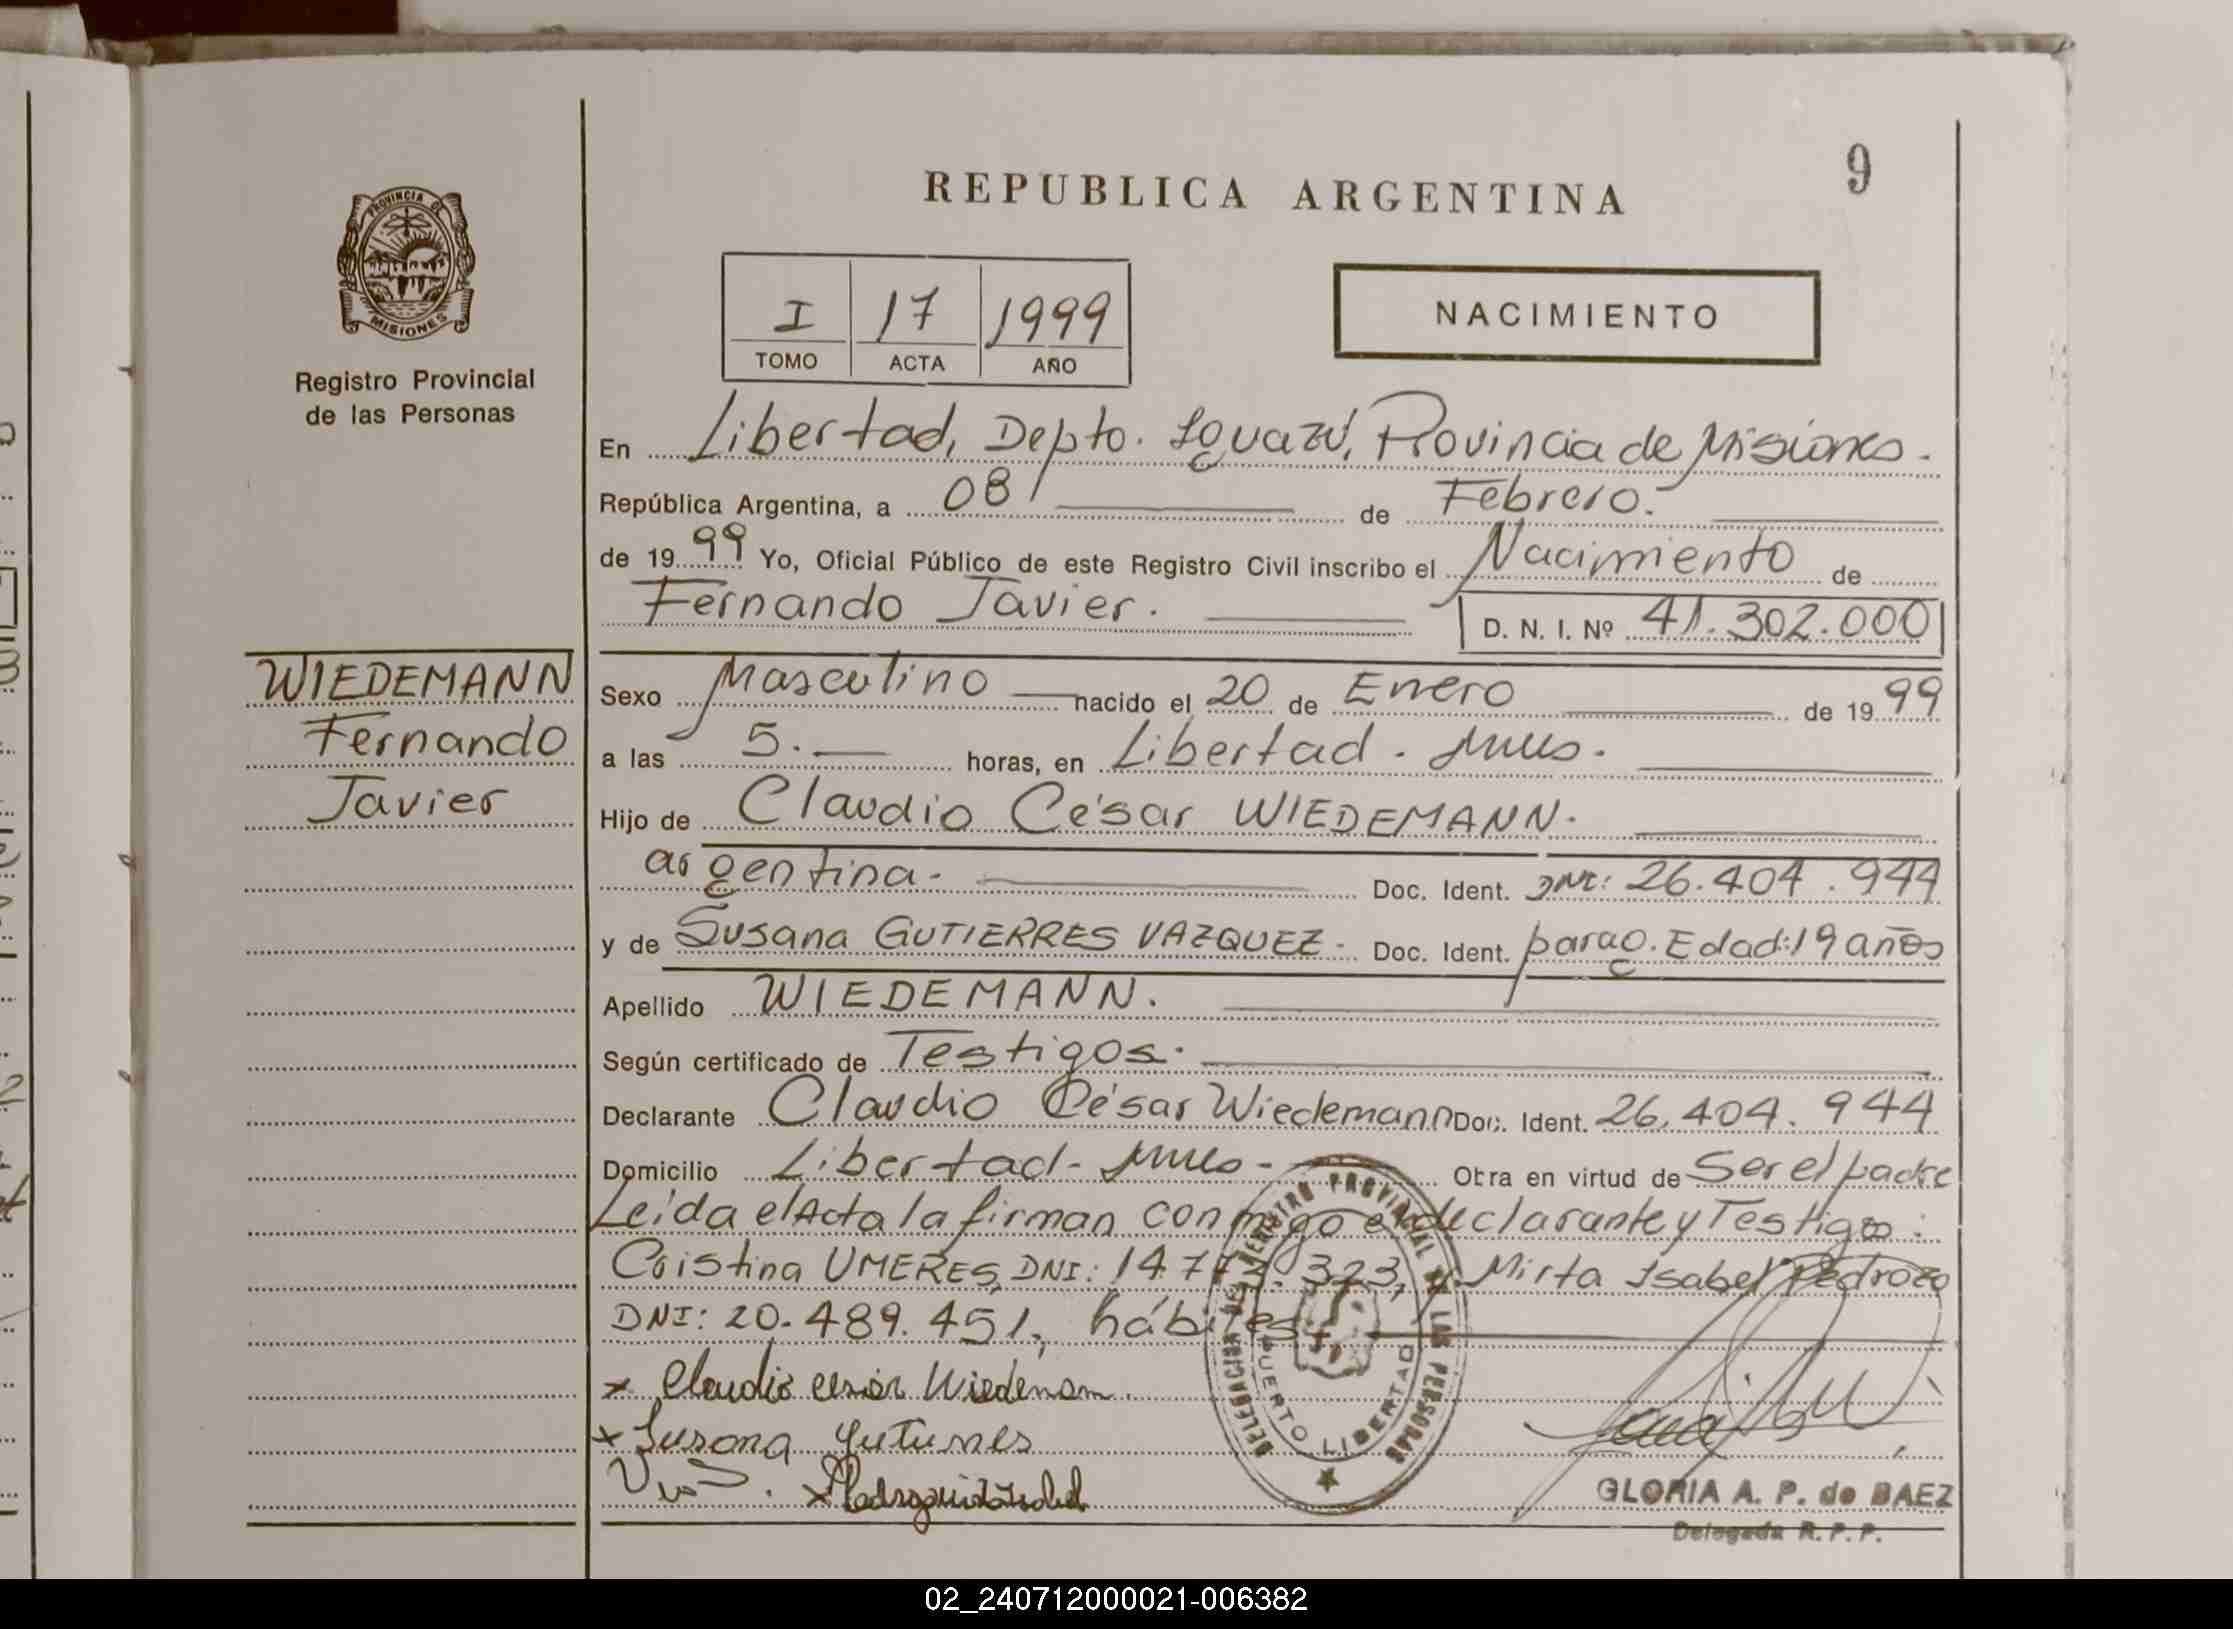 9
REPUBLICA ARGENTINA
PROVINCIA DE
MISIONES
Registro Provincial
de las Personas
I 17 1999
TOMO ACTA AÑO
NACIMIENTO
En Libertad, Depto. Iguazú, Provincia de Misiones.
República Argentina, a 08 de Febrero.
de 1999 Yo, Oficial Público de este Registro Civil inscribo el Nacimiento de
Fernando Javier. D. N. I. Nº 41.302.000
WIEDEMANN
Fernando
Javier
Sexo Masculino nacido el 20 de Enero de 1999
a las 5. horas, en Libertad. Mnes.
Hijo de Claudio César WIEDEMANN.
argentina. Doc. Ident. DNI: 26.404.944
y de Susana GUTIERRES VAZQUEZ. Doc. Ident. parag. Edad: 19 años
Apellido WIEDEMANN.
Según certificado de Testigos.
Declarante Claudio César Wiedemann Doc. Ident. 26.404.944
Domicilio Libertad - Mnes - Otra en virtud de Ser el padre
Leída el Acta la firman conmigo el declarante y Testigos:
Cristina UMERES, DNI: 323, y Mirta Isabel Pedrozo
DNI: 20.489.451, hábiles.
x Claudio cesar Wiedemam
x Susana Gutierres
DELEGACION DEL REGISTRO PROVINCIAL DE LAS PERSONAS
PUERTO LIBERTAD
GLORIA A. P. de BAEZ
Delegada R. P. P.
02_240712000021-006382